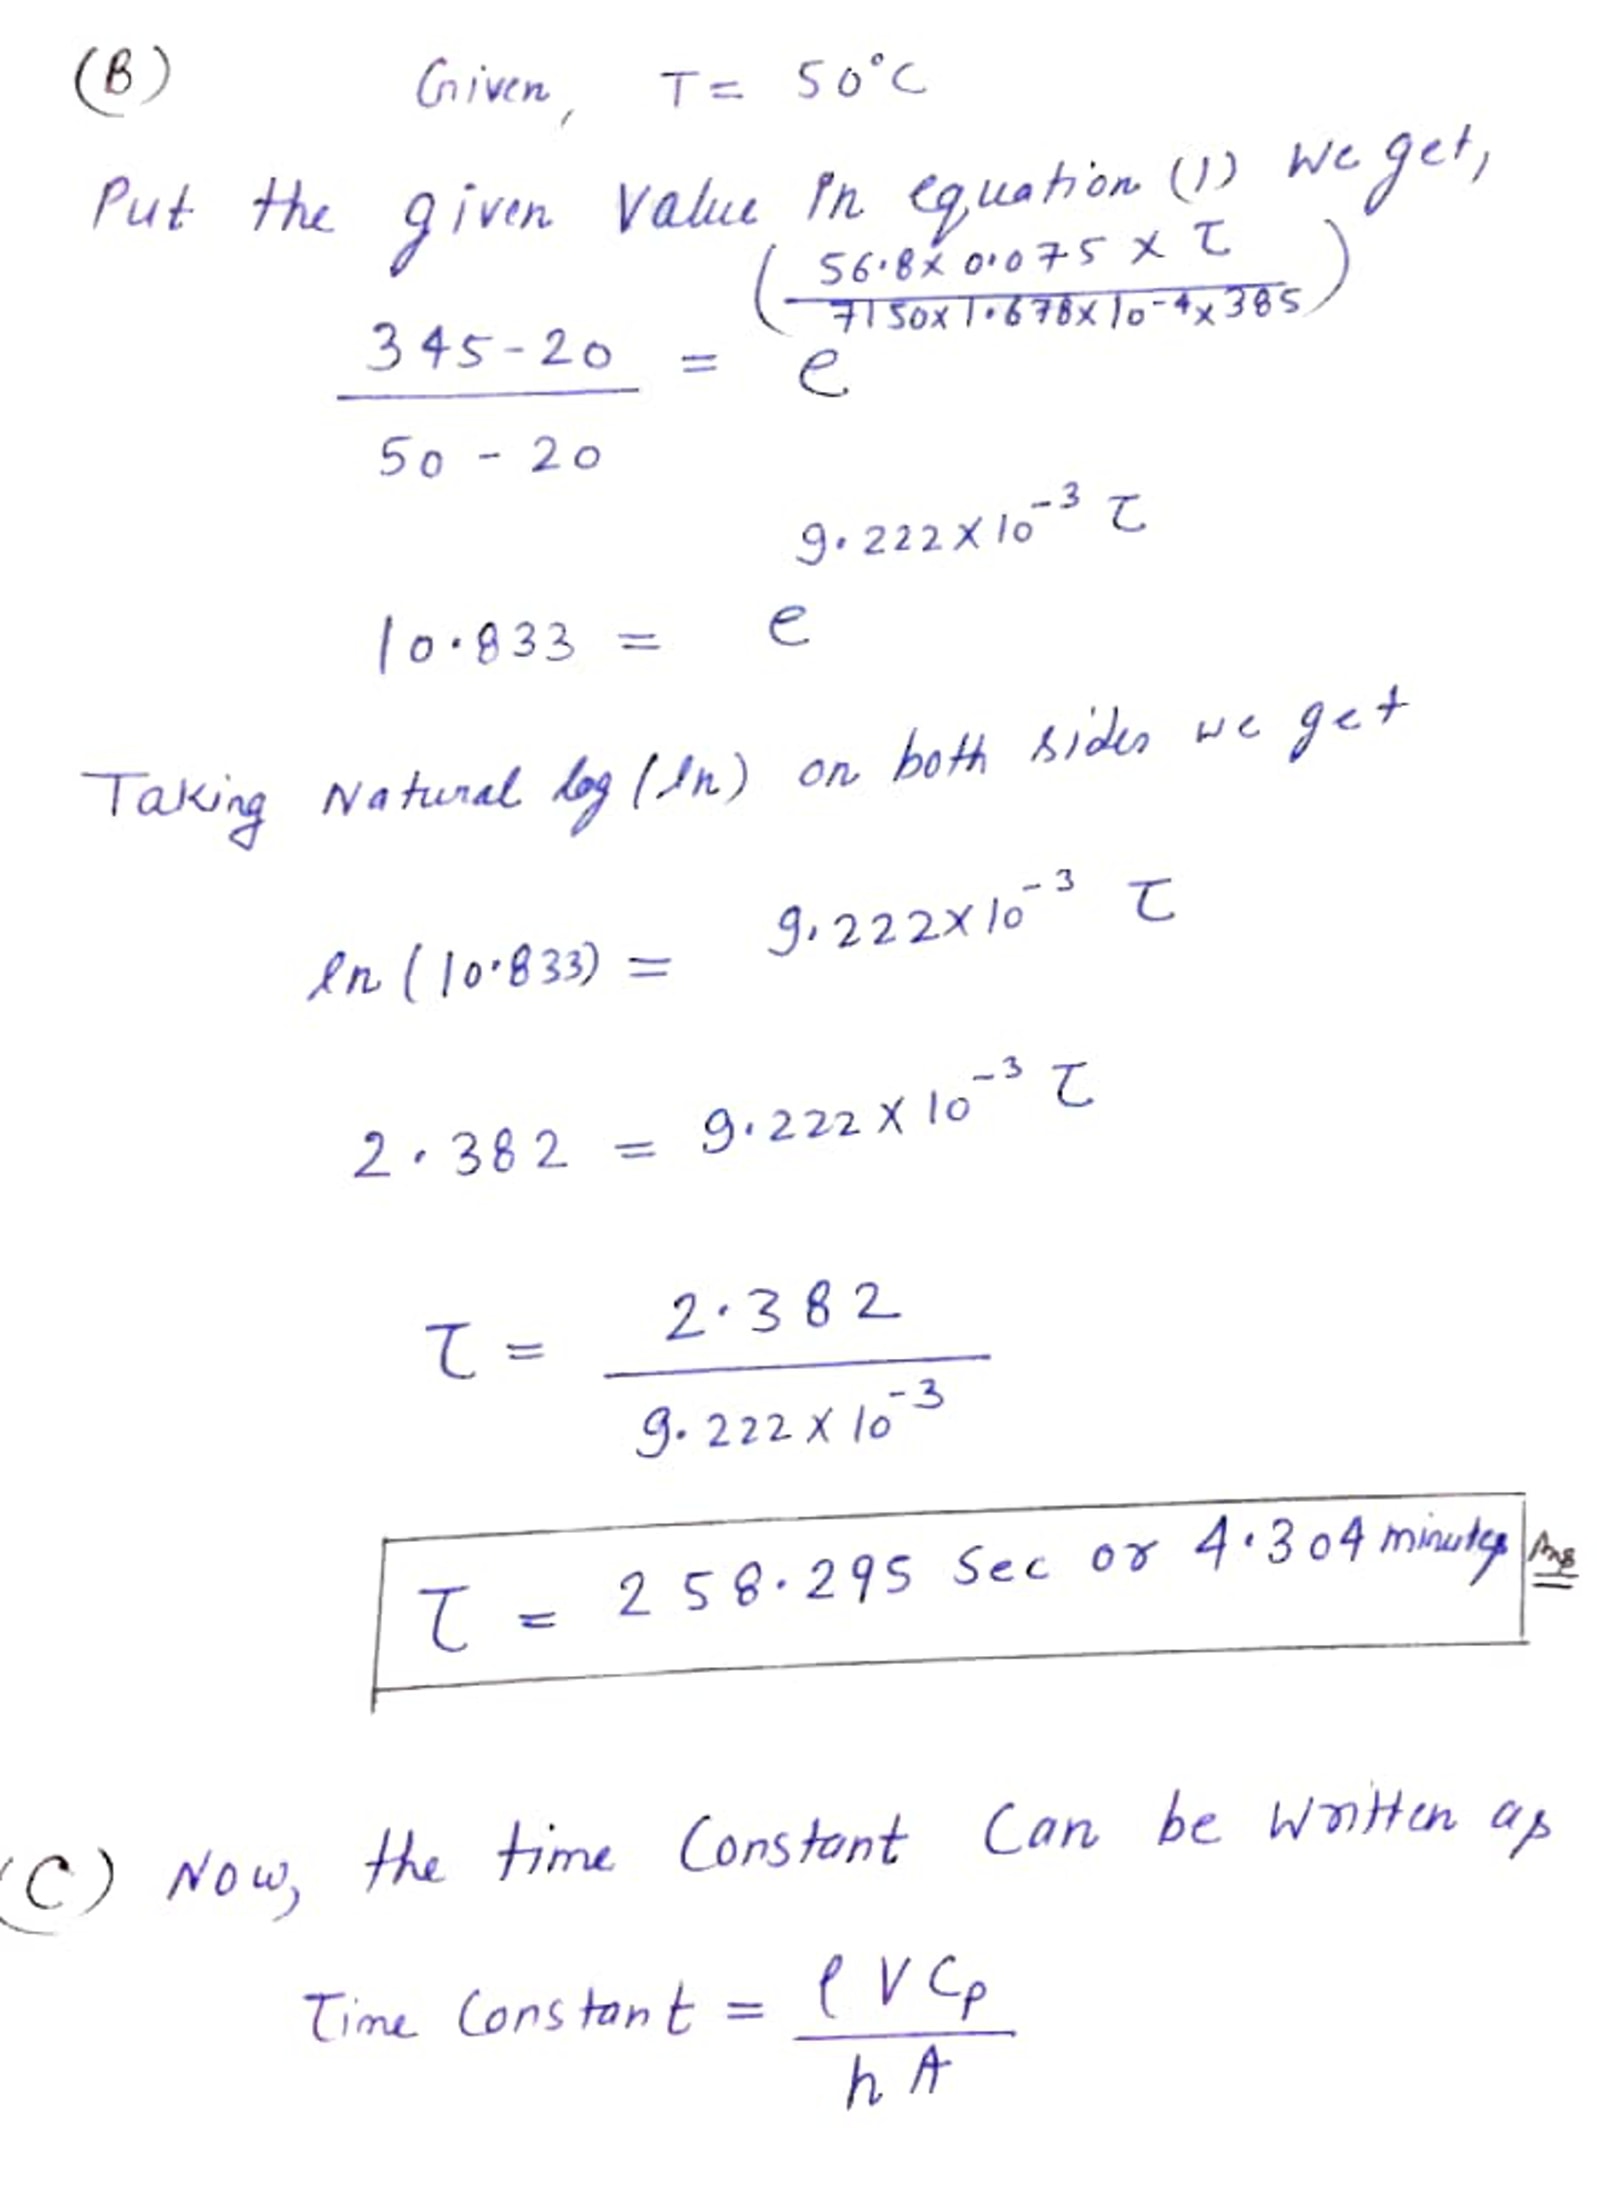 (B) Given, T = 50°C
Put the given Value in equation (1) we get,
(56.8 x 0.075 x τ
7150x1.678x10-4x385)
345-20 = e
50 - 20
9.222x10-3 τ
10.833 = e
Taking Natural log (ln) on both sides we get
ln (10.833) = 9.222x10-3 τ
2.382 = 9.222 x 10-3 τ
τ = 2.382
9.222 x 10-3
τ = 258.295 Sec or 4.304 minutes Ans
(C) Now, the time Constant Can be written as
Time Constant = ρ V Cp
h A